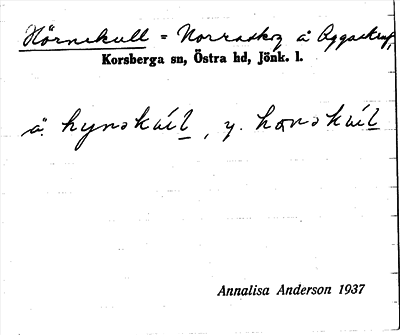 Hörnekull = Norraskog å Aggaskruv,
Korsberga sn, Östra hd, Jönk. l.
ä. hynəkúl, y. hɷnəkúl
Annalisa Anderson 1937